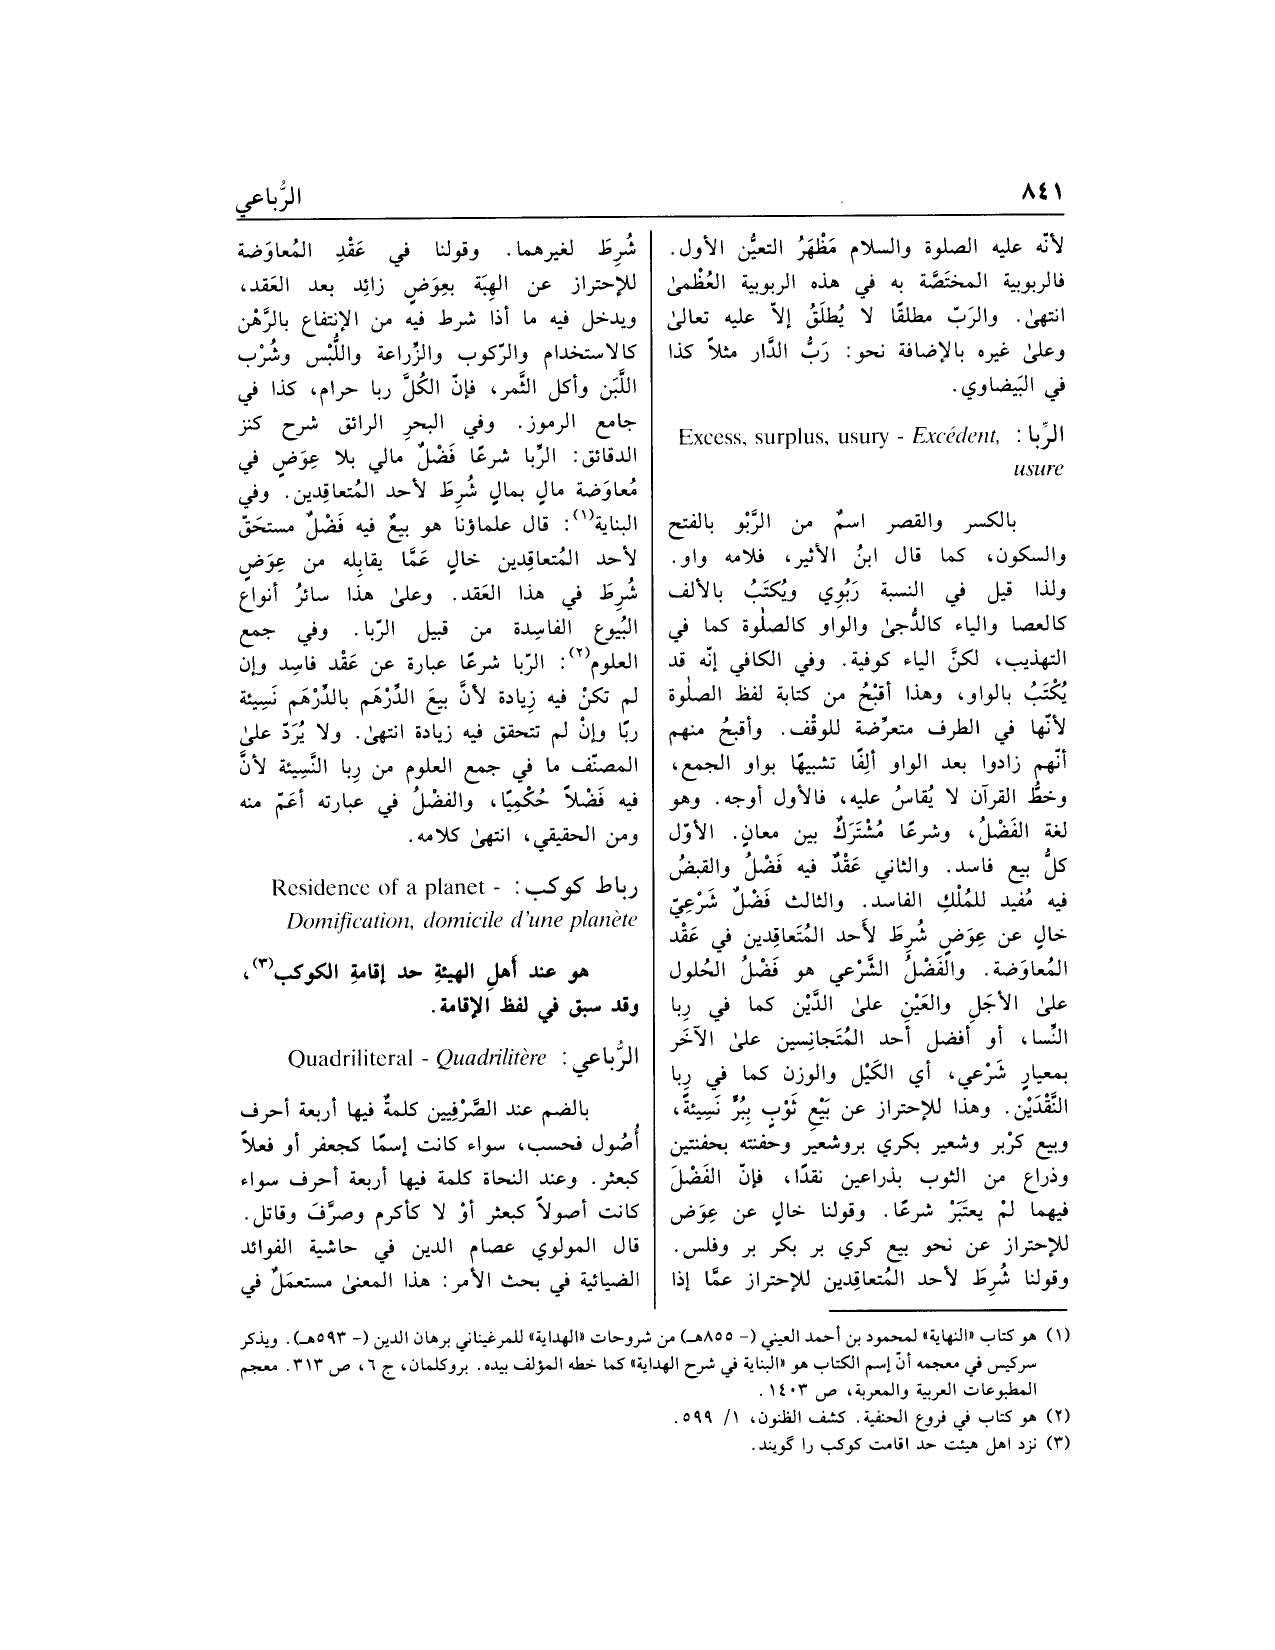 ٨٤١
الرُّباعي
لأنّه عليه الصلوة والسلام مَظْهَرُ التعيُّن الأول.
فالربوبية المختَصَّة به في هذه الربوبية العُظْمىٰ
انتهىٰ. والرَبّ مطلقًا لا يُطلَقُ إلاّ عليه تعالىٰ
وعلىٰ غيره بالإضافة نحو: رَبُّ الدَّار مثلاً كذا
في البَيضاوي.
الرِّبا: Excess, surplus, usury - Excédent,
usure
بالكسر والقصر اسمٌ من الرَّبْو بالفتح
والسكون، كما قال ابنُ الأثير، فلامه واو.
ولذا قيل في النسبة رَبُوِي ويُكتَبُ بالألف
كالعصا والياء كالدُّجىٰ والواو كالصلٰوة كما في
التهذيب، لكنَّ الياء كوفية. وفي الكافي إنّه قد
يُكْتَبُ بالواو، وهذا أقبْحُ من كتابة لفظ الصلٰوة
لأنّها في الطرف متعرِّضة للوقْف. وأقبحُ منهم
أنّهم زادوا بعد الواو ألِفًا تشبيهًا بواو الجمع،
وخطُّ القرآن لا يُقاسُ عليه، فالأول أوجه. وهو
لغة الفَضْلُ، وشرعًا مُشْتَرَكٌ بين معانٍ. الأوّل
كلُّ بيع فاسد. والثاني عَقْدٌ فيه فَضْلُ والقبضُ
فيه مُفيد للمُلْكِ الفاسد. والثالث فَضْلٌ شَرْعِيّ
خالٍ عن عِوَضٍ شُرِطَ لأحد المُتَعاقِدين في عَقْد
المُعاوَضة. والفَضْلُ الشَّرْعي هو فَضْلُ الحُلول
علىٰ الأجَلِ والعَيْنِ علىٰ الدَّيْن كما في رِبا
النِّسا، أو أفضل أحد المُتَجانِسين علىٰ الآخَر
بمعيارٍ شَرْعي، أي الكَيْل والوزن كما في رِبا
النَّقْدَيْن. وهذا للإحتراز عن بَيْعِ ثَوْبٍ بِبُرٍّ نَسِيئةً،
وبيع كرْبر وشعير بكري بروشعير وحفنته بحفنتين
وذراع من الثوب بذراعين نقدًا، فإنّ الفَضْلَ
فيهما لمْ يعتَبَرْ شرعًا. وقولنا خالٍ عن عِوَض
للإحتراز عن نحو بيع كري بر بكر بر وفلس.
وقولنا شُرِطَ لأحد المُتعاقِدين للإحتراز عمَّا إذا
شُرِطَ لغيرهما. وقولنا في عَقْدِ المُعاوَضة
للإحتراز عن الهِبَة بعِوَضٍ زائِد بعد العَقد،
ويدخل فيه ما أذا شرط فيه من الإنتفاع بالرَّهْن
كالاستخدام والرّكوب والزِّراعة واللُّبْس وشُرْب
اللَّبَن وأكل الثَّمر، فإنّ الكُلَّ ربا حرام، كذا في
جامع الرموز. وفي البحرِ الرائق شرح كنز
الدقائق: الرِّبا شرعًا فَضْلٌ مالي بلا عِوَضٍ في
مُعاوَضة مالٍ بمالٍ شُرِطَ لأحد المُتعاقِدين. وفي
البناية(١): قال علماؤنا هو بيعٌ فيه فَضْلٌ مستحَقّ
لأحد المُتعاقِدين خالٍ عَمَّا يقابِله من عِوَضٍ
شُرِطَ في هذا العَقد. وعلىٰ هذا سائرُ أنواع
البُيوع الفاسِدة من قبيل الرّبا. وفي جمع
العلوم(٢): الرّبا شرعًا عبارة عن عَقْد فاسِد وإن
لم تكنْ فيه زِيادة لأنَّ بيعَ الدِّرْهَم بالدِّرْهَم نَسِيئة
ربًا وإنْ لم تتحقق فيه زيادة انتهىٰ. ولا يُرَدّ علىٰ
المصنّف ما في جمع العلوم من رِبا النَّسِيئة لأنَّ
فيه فَضْلاً حُكْمِيًا، والفضْلُ في عبارته أعَمّ منه
ومن الحقيقي، انتهىٰ كلامه.
رباط كوكب: Residence of a planet -
Domification, domicile d'une planète
هو عند أهلِ الهيئةِ حد إقامةِ الكوكب(٣)،
وقد سبق في لفظ الإقامة.
الرُّباعي: Quadriliteral - Quadrilitère
بالضم عند الصَّرْفِيين كلمةٌ فيها أربعة أحرف
أُصُول فحسب، سواء كانت إسمًا كجعفر أو فعلاً
كبعثر. وعند النحاة كلمة فيها أربعة أحرف سواء
كانت أصولاً كبعثر أوْ لا كأكرم وصرَّفَ وقاتل.
قال المولوي عصام الدين في حاشية الفوائد
الضيائية في بحث الأمر: هذا المعنىٰ مستعمَلٌ في
(١) هو كتاب «النهاية» لمحمود بن أحمد العيني (- ٨٥٥هـ) من شروحات «الهداية» للمرغيناني برهان الدين (- ٥٩٣هـ). ويذكر
سركيس في معجمه أنّ إسم الكتاب هو «البناية في شرح الهداية» كما خطه المؤلف بيده. بروكلمان، ج ٦، ص ٣١٣. معجم
المطبوعات العربية والمعربة، ص ١٤٠٣.
(٢) هو كتاب في فروع الحنفية. كشف الظنون، ١/ ٥٩٩.
(٣) نزد اهل هيئت حد اقامت كوكب را گويند.